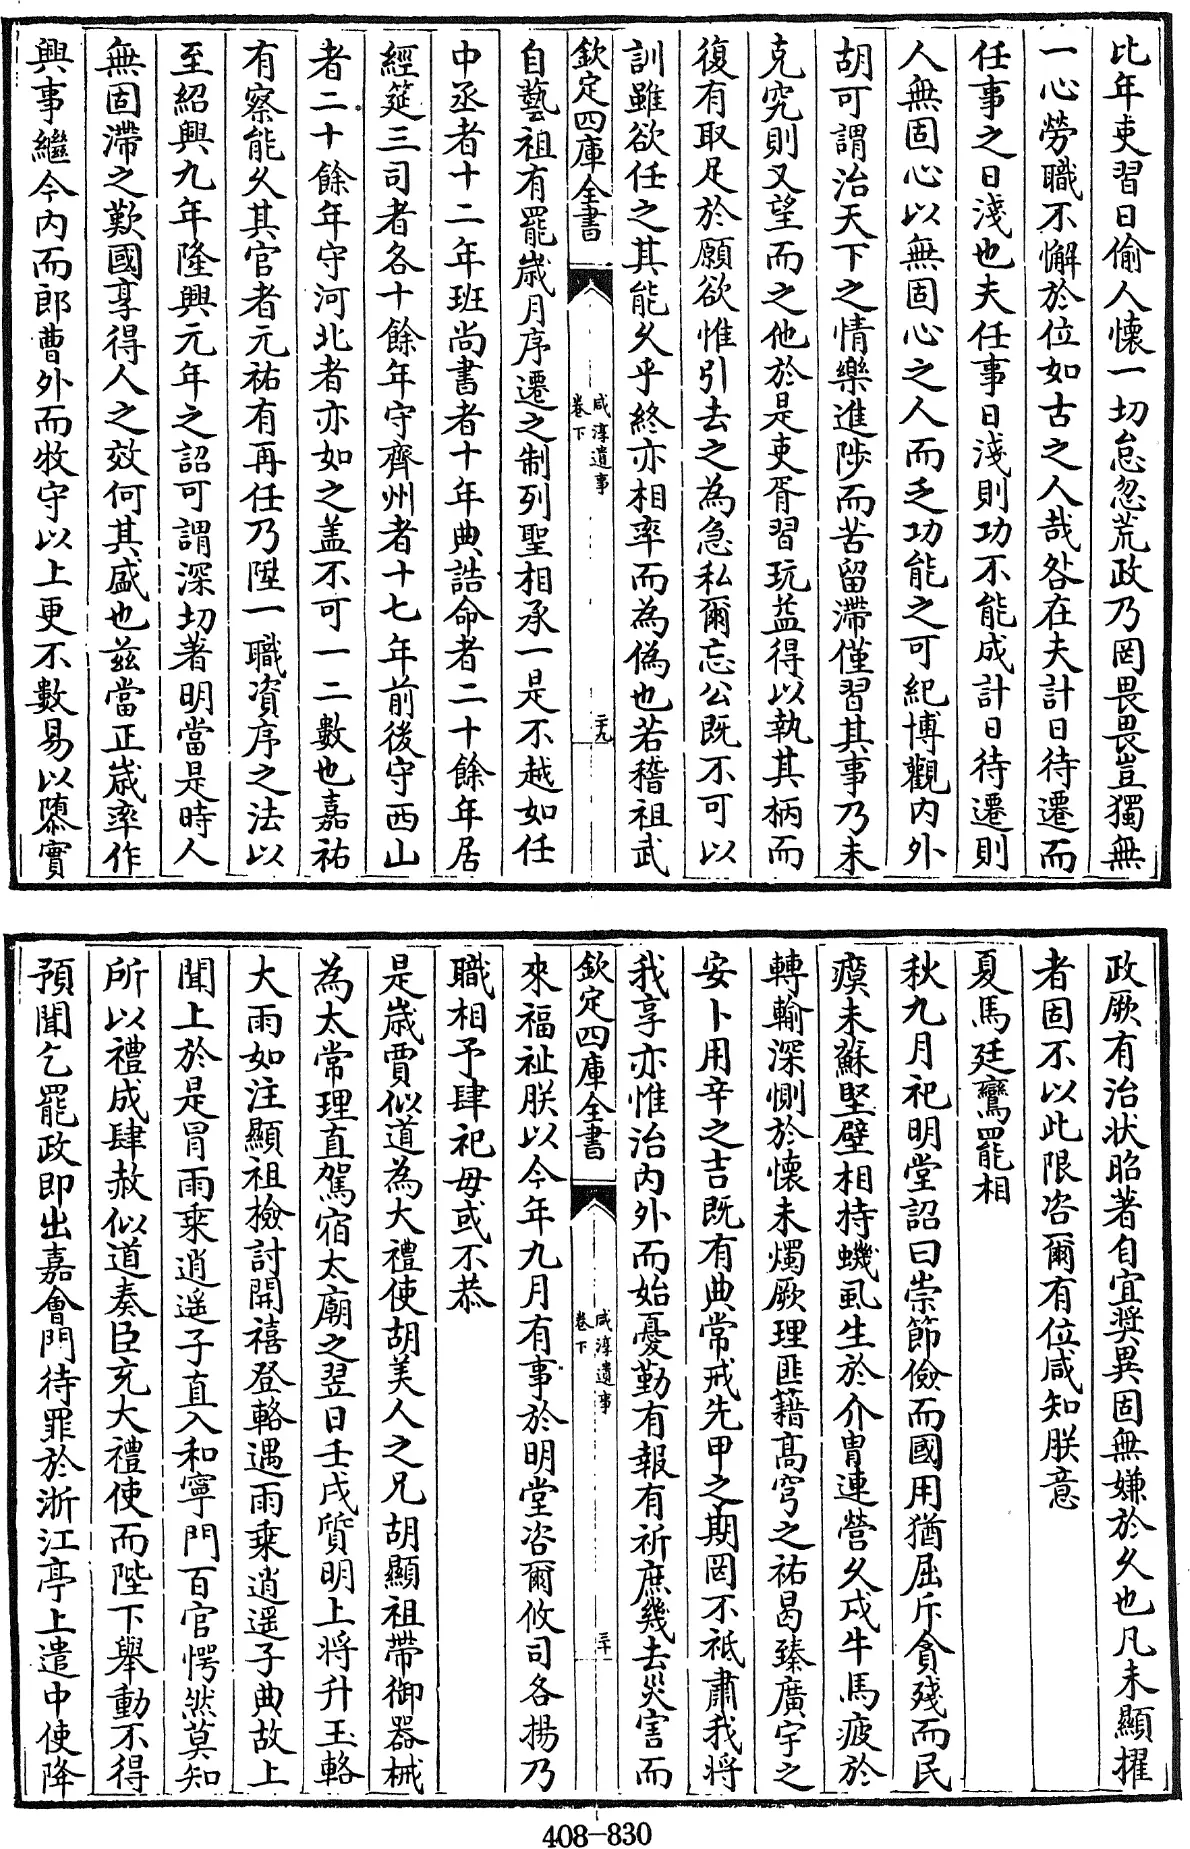 比年吏習日偷人懷一切怠忽荒政乃罔畏畏豈獨無
一心勞職不懈於位如古之人哉咎在夫計日待遷而
任事之日淺也夫任事日淺則功不能成計日待遷則
人無固心以無固心之人而乏功能之可紀博觀内外
胡可謂治天下之情樂進陟而苦留滯僅習其事乃未
克究則又望而之他於是吏胥習玩益得以執其柄而
復有取足於願欲惟引去之為急私爾忘公既不可以
訓雖欲任之其能久乎終亦相率而為偽也若稽祖武
欽定四庫全書
咸淳遺事
卷下
二十九
自藝祖有罷歲月序遷之制列聖相承一是不越如任
中丞者十二年班尚書者十年典誥命者二十餘年居
經筵三司者各十餘年守齊州者十七年前後守西山
者二十餘年守河北者亦如之盖不可一二數也嘉祐
有察能久其官者元祐有再任乃陞一職資序之法以
至紹興九年隆興元年之詔可謂深切著明當是時人
無固滯之歎國享得人之效何其盛也兹當正歲率作
興事繼今内而郎曹外而牧守以上更不數易以隳實
政厥有治狀昭著自宜奬異固無嫌於久也凡未顯擢
者固不以此限咨爾有位咸知朕意
夏馬廷鸞罷相
秋九月祀明堂詔曰崇節儉而國用猶屈斥貪殘而民
瘼未蘇堅壁相持蟣虱生於介胄連營久戍牛馬疲於
轉輸深惻於懷未燭厥理匪籍髙穹之祐曷臻廣宇之
安卜用辛之吉既有典常戒先甲之期罔不祗肅我將
我享亦惟治内外而始憂勤有報有祈庶幾去災害而
欽定四庫全書
咸淳遺事
卷下
三十
來福祉朕以今年九月有事於明堂咨爾攸司各揚乃
職相予肆祀毋或不恭
是歲賈似道為大禮使胡美人之兄胡顯祖帶御器械
為太常理直駕宿太廟之翌日壬戌質明上將升玉輅
大雨如注顯祖檢討開禧登輅遇雨乗逍遥子典故上
聞上於是冒雨乗逍遥子直入和寧門百官愕然莫知
所以禮成肆赦似道奏臣充大禮使而陛下舉動不得
預聞乞罷政即出嘉會門待罪於浙江亭上遣中使降
408-830